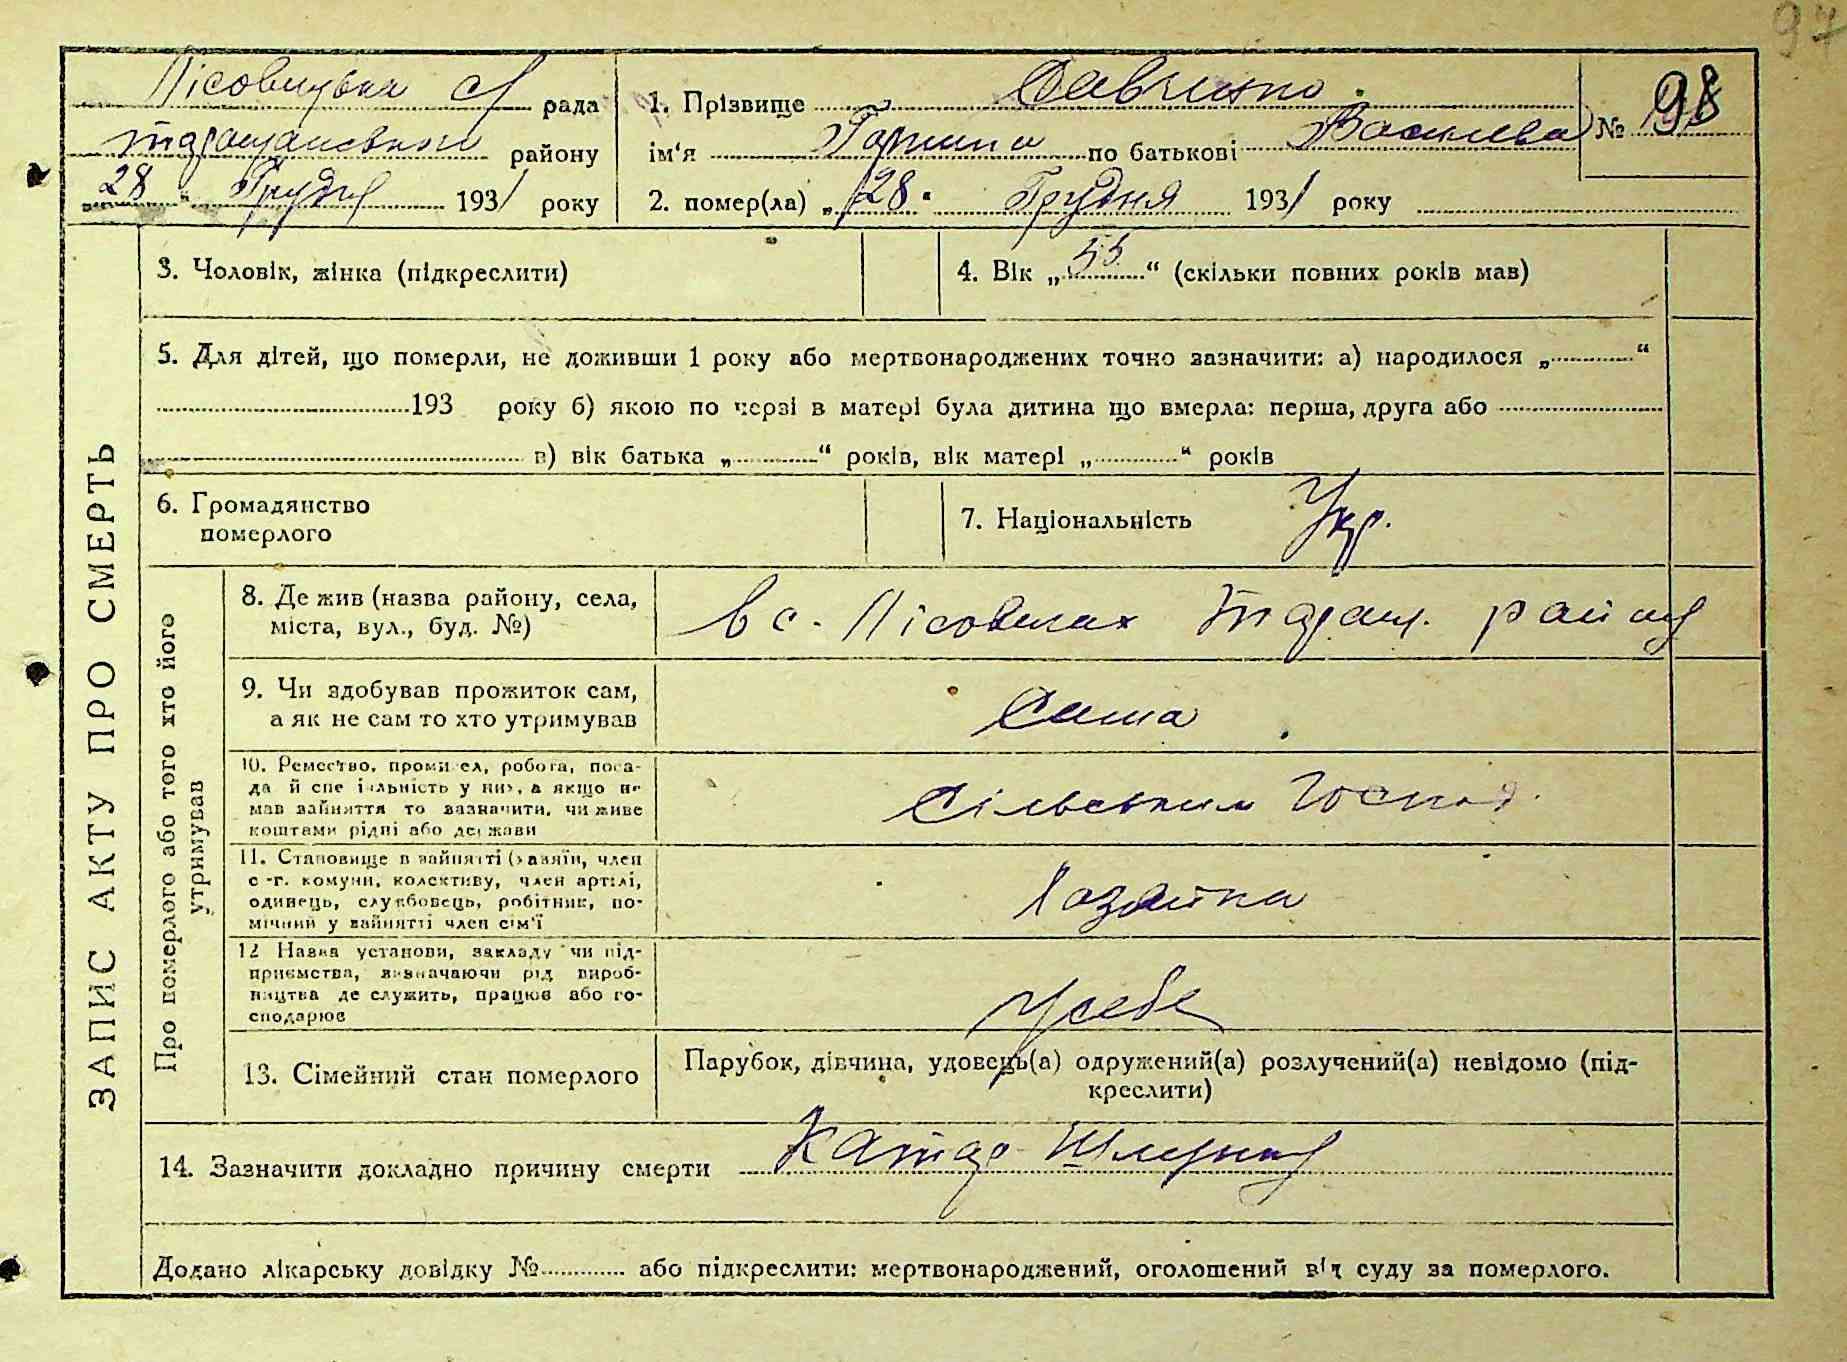 97
Лісовицька с/ рада
Таращанського району
28 " Грудня 1931 року
1. Прізвище Савченко
ім'я Горпина по батькові Василева
№ 98
2. помер(ла) „28" Грудня 1931 року
ЗАПИС АКТУ ПРО СМЕРТЬ
3. Чоловік, жінка (підкреслити)
4. Вік „55“ (скільки повних років мав)
5. Для дітей, що померли, не доживши 1 року або мертвонароджених точно зазначити: а) народилося „ “
193 року б) якою по черзі в матері була дитина що вмерла: перша, друга або
в) вік батька „ “ років, вік матері „ “ років
6. Громадянство
померлого
7. Національність Укр.
Про померлого або того хто його
утримував
8. Де жив (назва району, села,
міста, вул., буд. №)
в с. Лісовичах Таращ. району
9. Чи здобував прожиток сам,
а як не сам то хто утримував
Сама
10. Ремество, промисел, робота, поса-
да й спеціяльність у них, а якщо не
мав зайняття то зазначити, чи живе
коштами рідні або держави
Сільським Господ.
11. Становище в зайнятті (хазяїн, член
с-г. комуни, колективу, член артілі,
одинець, службовець, робітник, по-
мічний у зайнятті член сім'ї
Хазяйка
12 Назва установи, закладу чи під-
приємства, визначаючи рід вироб-
ництва де служить, працює або го-
сподарює
У себе
13. Сімейний стан померлого
Парубок, дівчина, удовець(а) одружений(а) розлучений(а) невідомо (під-
креслити)
14. Зазначити докладно причину смерти Катар Шлунку
Додано лікарську довідку № або підкреслити: мертвонароджений, оголошений від суду за померлого.